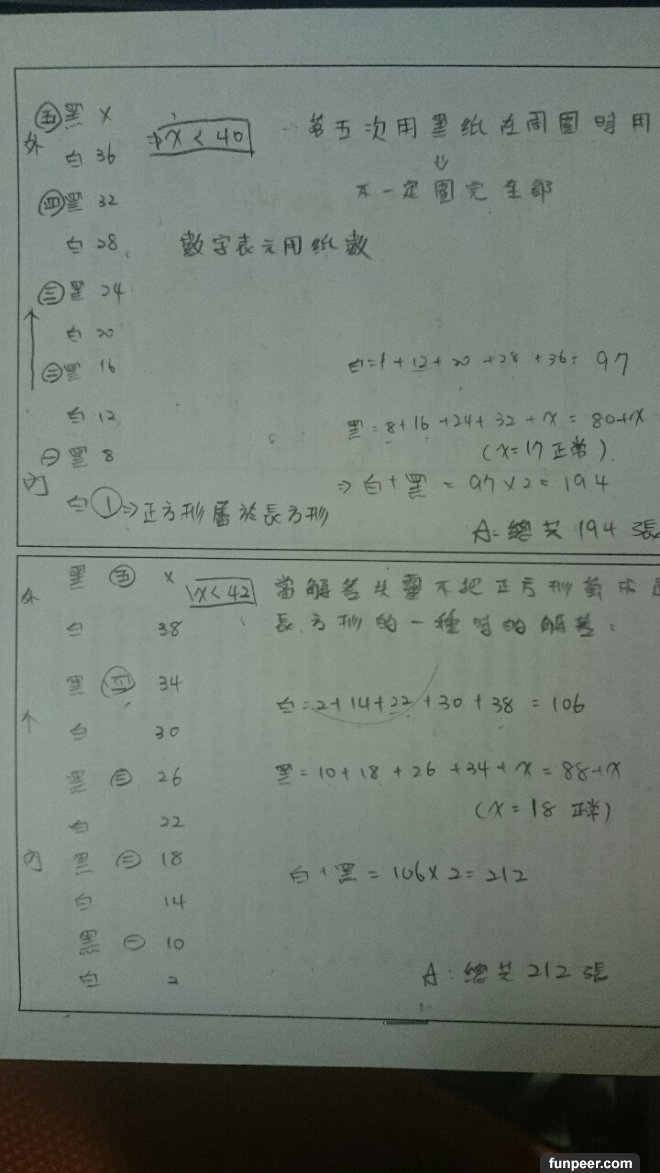 外 ㊄黑 x
白 36
㊃黑 32
白 28
㊂黑 24
白 20
㊁黑 16
白 12
㊀黑 8
內 白 ① ⇒正方形屬於長方形
⇒ x < 40
第五次用黑紙在周圍時用
⇓
不一定圍完全部
數字表示用紙數
白=1+12+20+28+36=97
黑=8+16+24+32+x=80+x
(x=17正常)
⇒白+黑=97×2=194
A:總共194張
外 黑 ㊄ x
白 38
黑 ㊃ 34
白 30
黑 ㊂ 26
白 22
內 黑 ㊁ 18
白 14
黑 ㊀ 10
白 2
x< 42
當解答失靈不把正方形算
長方形的一種時的解答:
白=2+14+22+30+38=106
黑=10+18+26+34+x=88+x
(x=18 正常)
白+黑=106×2=212
A:總共212張
funpeer.com